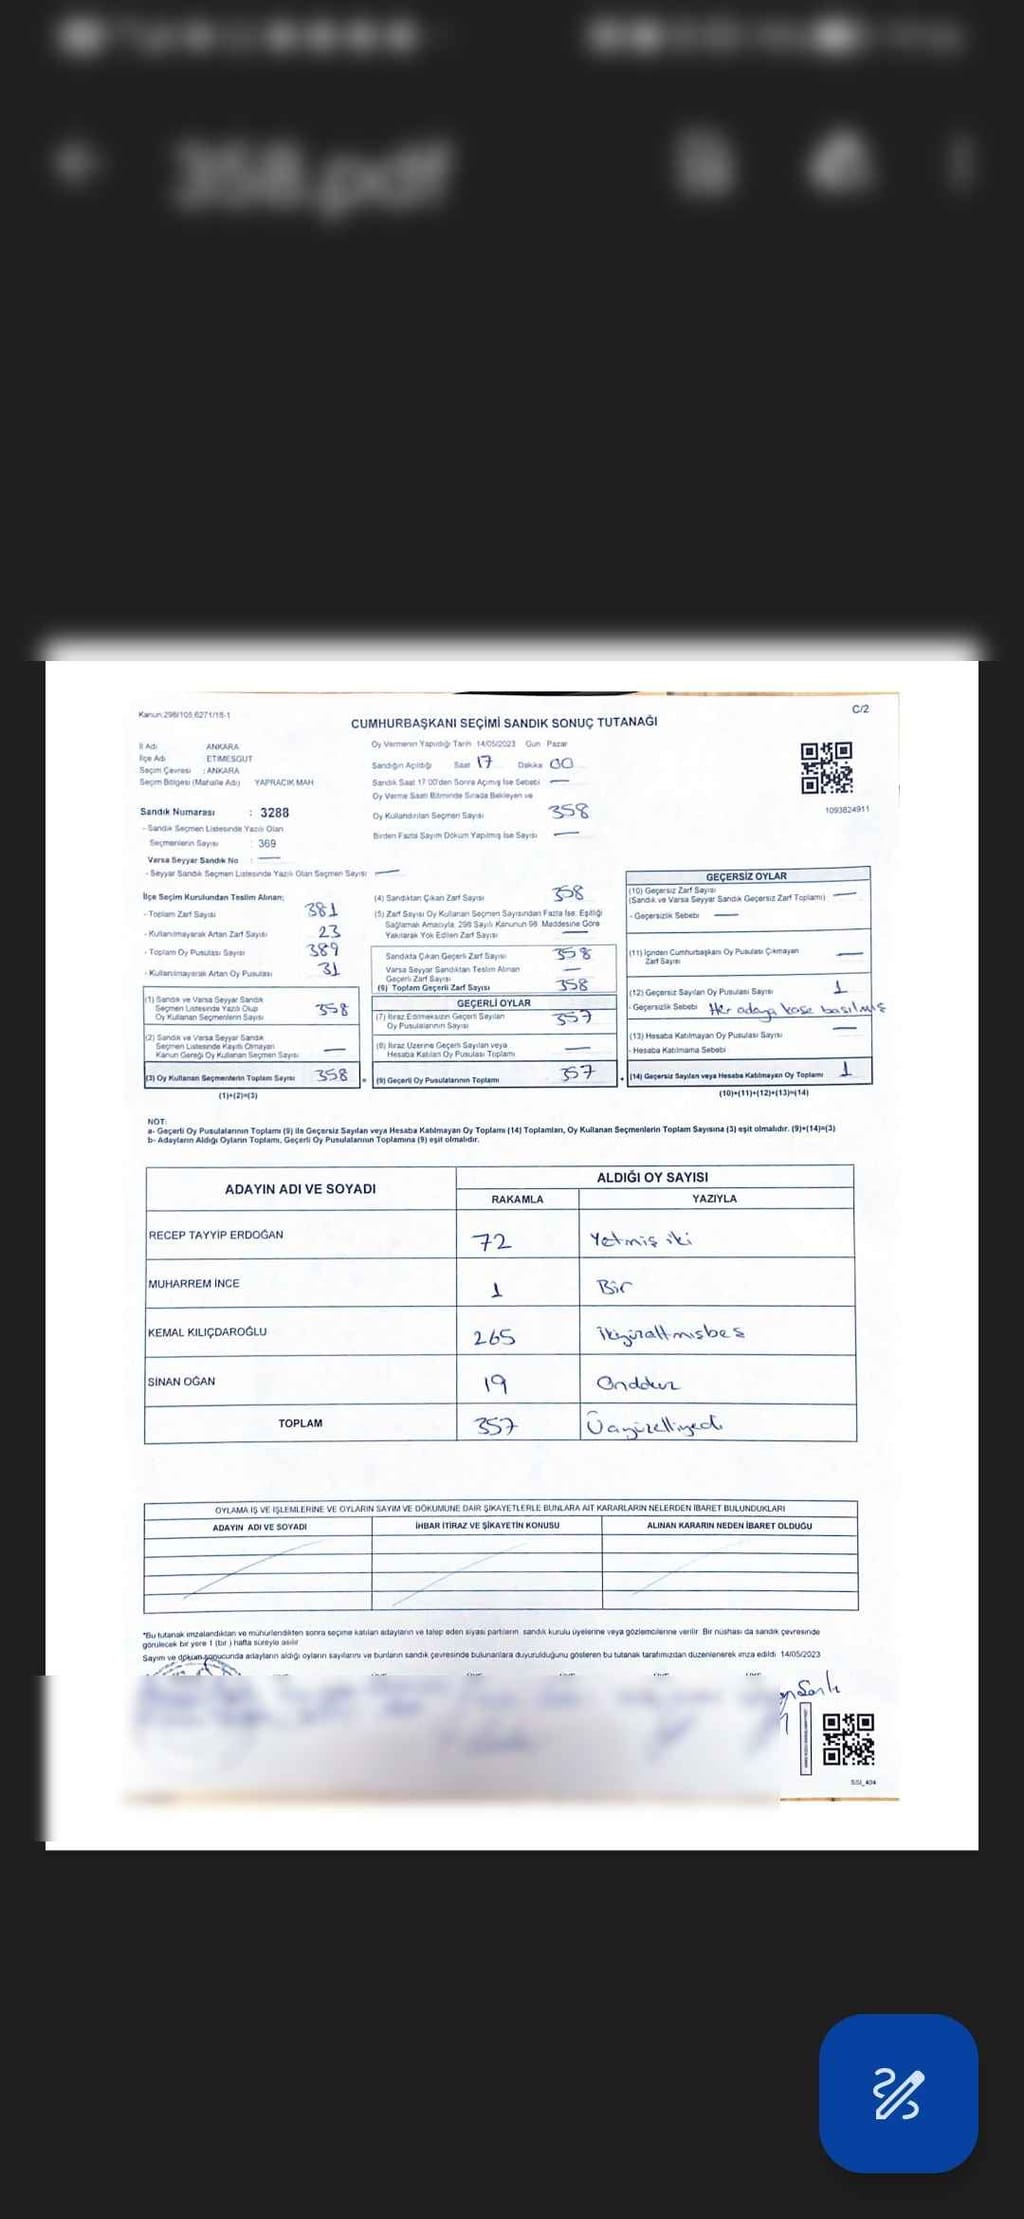 358.pdf
Kanun:298/105;6271/18-1
C/2
CUMHURBAŞKANI SEÇİMİ SANDIK SONUÇ TUTANAĞI
İl Adı ANKARA
İlçe Adı ETİMESGUT
Seçim Çevresi : ANKARA
Seçim Bölgesi (Mahalle Adı) YAPRACIK MAH
Sandık Numarası : 3288
- Sandık Seçmen Listesinde Yazılı Olan
Seçmenlerin Sayısı : 369
Varsa Seyyar Sandık No : —
- Seyyar Sandık Seçmen Listesinde Yazılı Olan Seçmen Sayısı —
Oy Vermenin Yapıldığı Tarih 14/05/2023 Gün Pazar
Sandığın Açıldığı Saat 17 Dakika 00
Sandık Saat 17:00'den Sonra Açılmış İse Sebebi —
Oy Verme Saati Bitiminde Sırada Bekleyen ve
Oy Kullandırılan Seçmen Sayısı 358
Birden Fazla Sayım Döküm Yapılmış İse Sayısı —
1093824911
İlçe Seçim Kurulundan Teslim Alınan;
- Toplam Zarf Sayısı 381
- Kullanılmayarak Artan Zarf Sayısı 23
- Toplam Oy Pusulası Sayısı 389
- Kullanılmayarak Artan Oy Pusulası 31
(1) Sandık ve Varsa Seyyar Sandık
Seçmen Listesinde Yazılı Olup
Oy Kullanan Seçmenlerin Sayısı 358
(2) Sandık ve Varsa Seyyar Sandık
Seçmen Listesinde Kayıtlı Olmayan
Kanun Gereği Oy Kullanan Seçmen Sayısı —
(3) Oy Kullanan Seçmenlerin Toplam Sayısı 358
(1)+(2)=(3)
(4) Sandıktan Çıkan Zarf Sayısı 358
(5) Zarf Sayısı Oy Kullanan Seçmen Sayısından Fazla İse, Eşitliği
Sağlamak Amacıyla, 298 Sayılı Kanunun 98. Maddesine Göre
Yakılarak Yok Edilen Zarf Sayısı —
Sandıkta Çıkan Geçerli Zarf Sayısı 358
Varsa Seyyar Sandıktan Teslim Alınan
Geçerli Zarf Sayısı —
(6) Toplam Geçerli Zarf Sayısı 358
GEÇERLİ OYLAR
(7) İtiraz Edilmeksizin Geçerli Sayılan
Oy Pusulalarının Sayısı 357
(8) İtiraz Üzerine Geçerli Sayılan veya
Hesaba Katılan Oy Pusulası Toplamı —
= (9) Geçerli Oy Pusulalarının Toplamı 357
GEÇERSİZ OYLAR
(10) Geçersiz Zarf Sayısı
(Sandık ve Varsa Seyyar Sandık Geçersiz Zarf Toplamı) —
- Geçersizlik Sebebi —
(11) İçinden Cumhurbaşkanı Oy Pusulası Çıkmayan
Zarf Sayısı —
(12) Geçersiz Sayılan Oy Pusulası Sayısı 1
- Geçersizlik Sebebi Her adaya kaşe basılmış
(13) Hesaba Katılmayan Oy Pusulası Sayısı —
- Hesaba Katılmama Sebebi
+ (14) Geçersiz Sayılan veya Hesaba Katılmayan Oy Toplamı 1
(10)+(11)+(12)+(13)=(14)
NOT:
a- Geçerli Oy Pusulalarının Toplamı (9) ile Geçersiz Sayılan veya Hesaba Katılmayan Oy Toplamı (14) Toplamları, Oy Kullanan Seçmenlerin Toplam Sayısına (3) eşit olmalıdır. (9)+(14)=(3)
b- Adayların Aldığı Oyların Toplamı, Geçerli Oy Pusulalarının Toplamına (9) eşit olmalıdır.
ADAYIN ADI VE SOYADI ALDIĞI OY SAYISI
RAKAMLA YAZIYLA
RECEP TAYYİP ERDOĞAN 72 Yetmiş iki
MUHARREM İNCE 1 Bir
KEMAL KILIÇDAROĞLU 265 ikiyüzaltmışbeş
SİNAN OĞAN 19 Ondokuz
TOPLAM 357 Üçyüzelliyedi
OYLAMA İŞ VE İŞLEMLERİNE VE OYLARIN SAYIM VE DÖKÜMÜNE DAİR ŞİKAYETLERLE BUNLARA AİT KARARLARIN NELERDEN İBARET BULUNDUKLARI
ADAYIN ADI VE SOYADI İHBAR İTİRAZ VE ŞİKAYETİN KONUSU ALINAN KARARIN NEDEN İBARET OLDUĞU
*Bu tutanak imzalandıktan ve mühürlendikten sonra seçime katılan adayların ve talep eden siyasi partilerin sandık kurulu üyelerine veya gözlemcilerine verilir. Bir nüshası da sandık çevresinde
görülecek bir yere 1 (bir ) hafta süreyle asılır
Sayım ve döküm sonucunda adayların aldığı oyların sayılarını ve bunların sandık çevresinde bulunanlara duyurulduğunu gösteren bu tutanak tarafımızdan düzenlenerek imza edildi. 14/05/2023
SSI_404